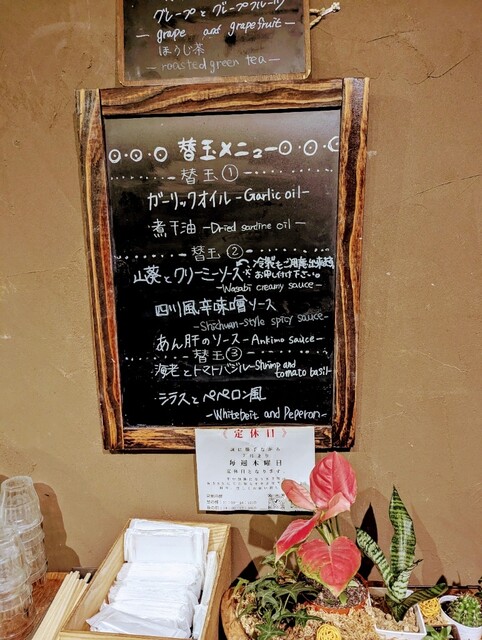 グレープとグレープフルーツ
— grape and grapefruit —
ほうじ茶
— roasted green tea —
替玉メニュー
替玉①
ガーリックオイル -Garlic oil-
煮干油 -Dried sardine oil-
替玉②
山葵とクリーミーソース
冷製もご用意出来ます。
お申し付け下さい。
-Wasabi creamy sauce-
四川風辛味噌ソース
-Shichuan-style spicy sauce-
あん肝のソース -Ankimo sauce-
替玉③
海老とトマトバジル -Shrimp and
tomato basil-
シラスとペペロン風
-Whitebeit and Peperon-
《定休日》
誠に勝手ながら
7月より
毎週木曜日
定休日となります。